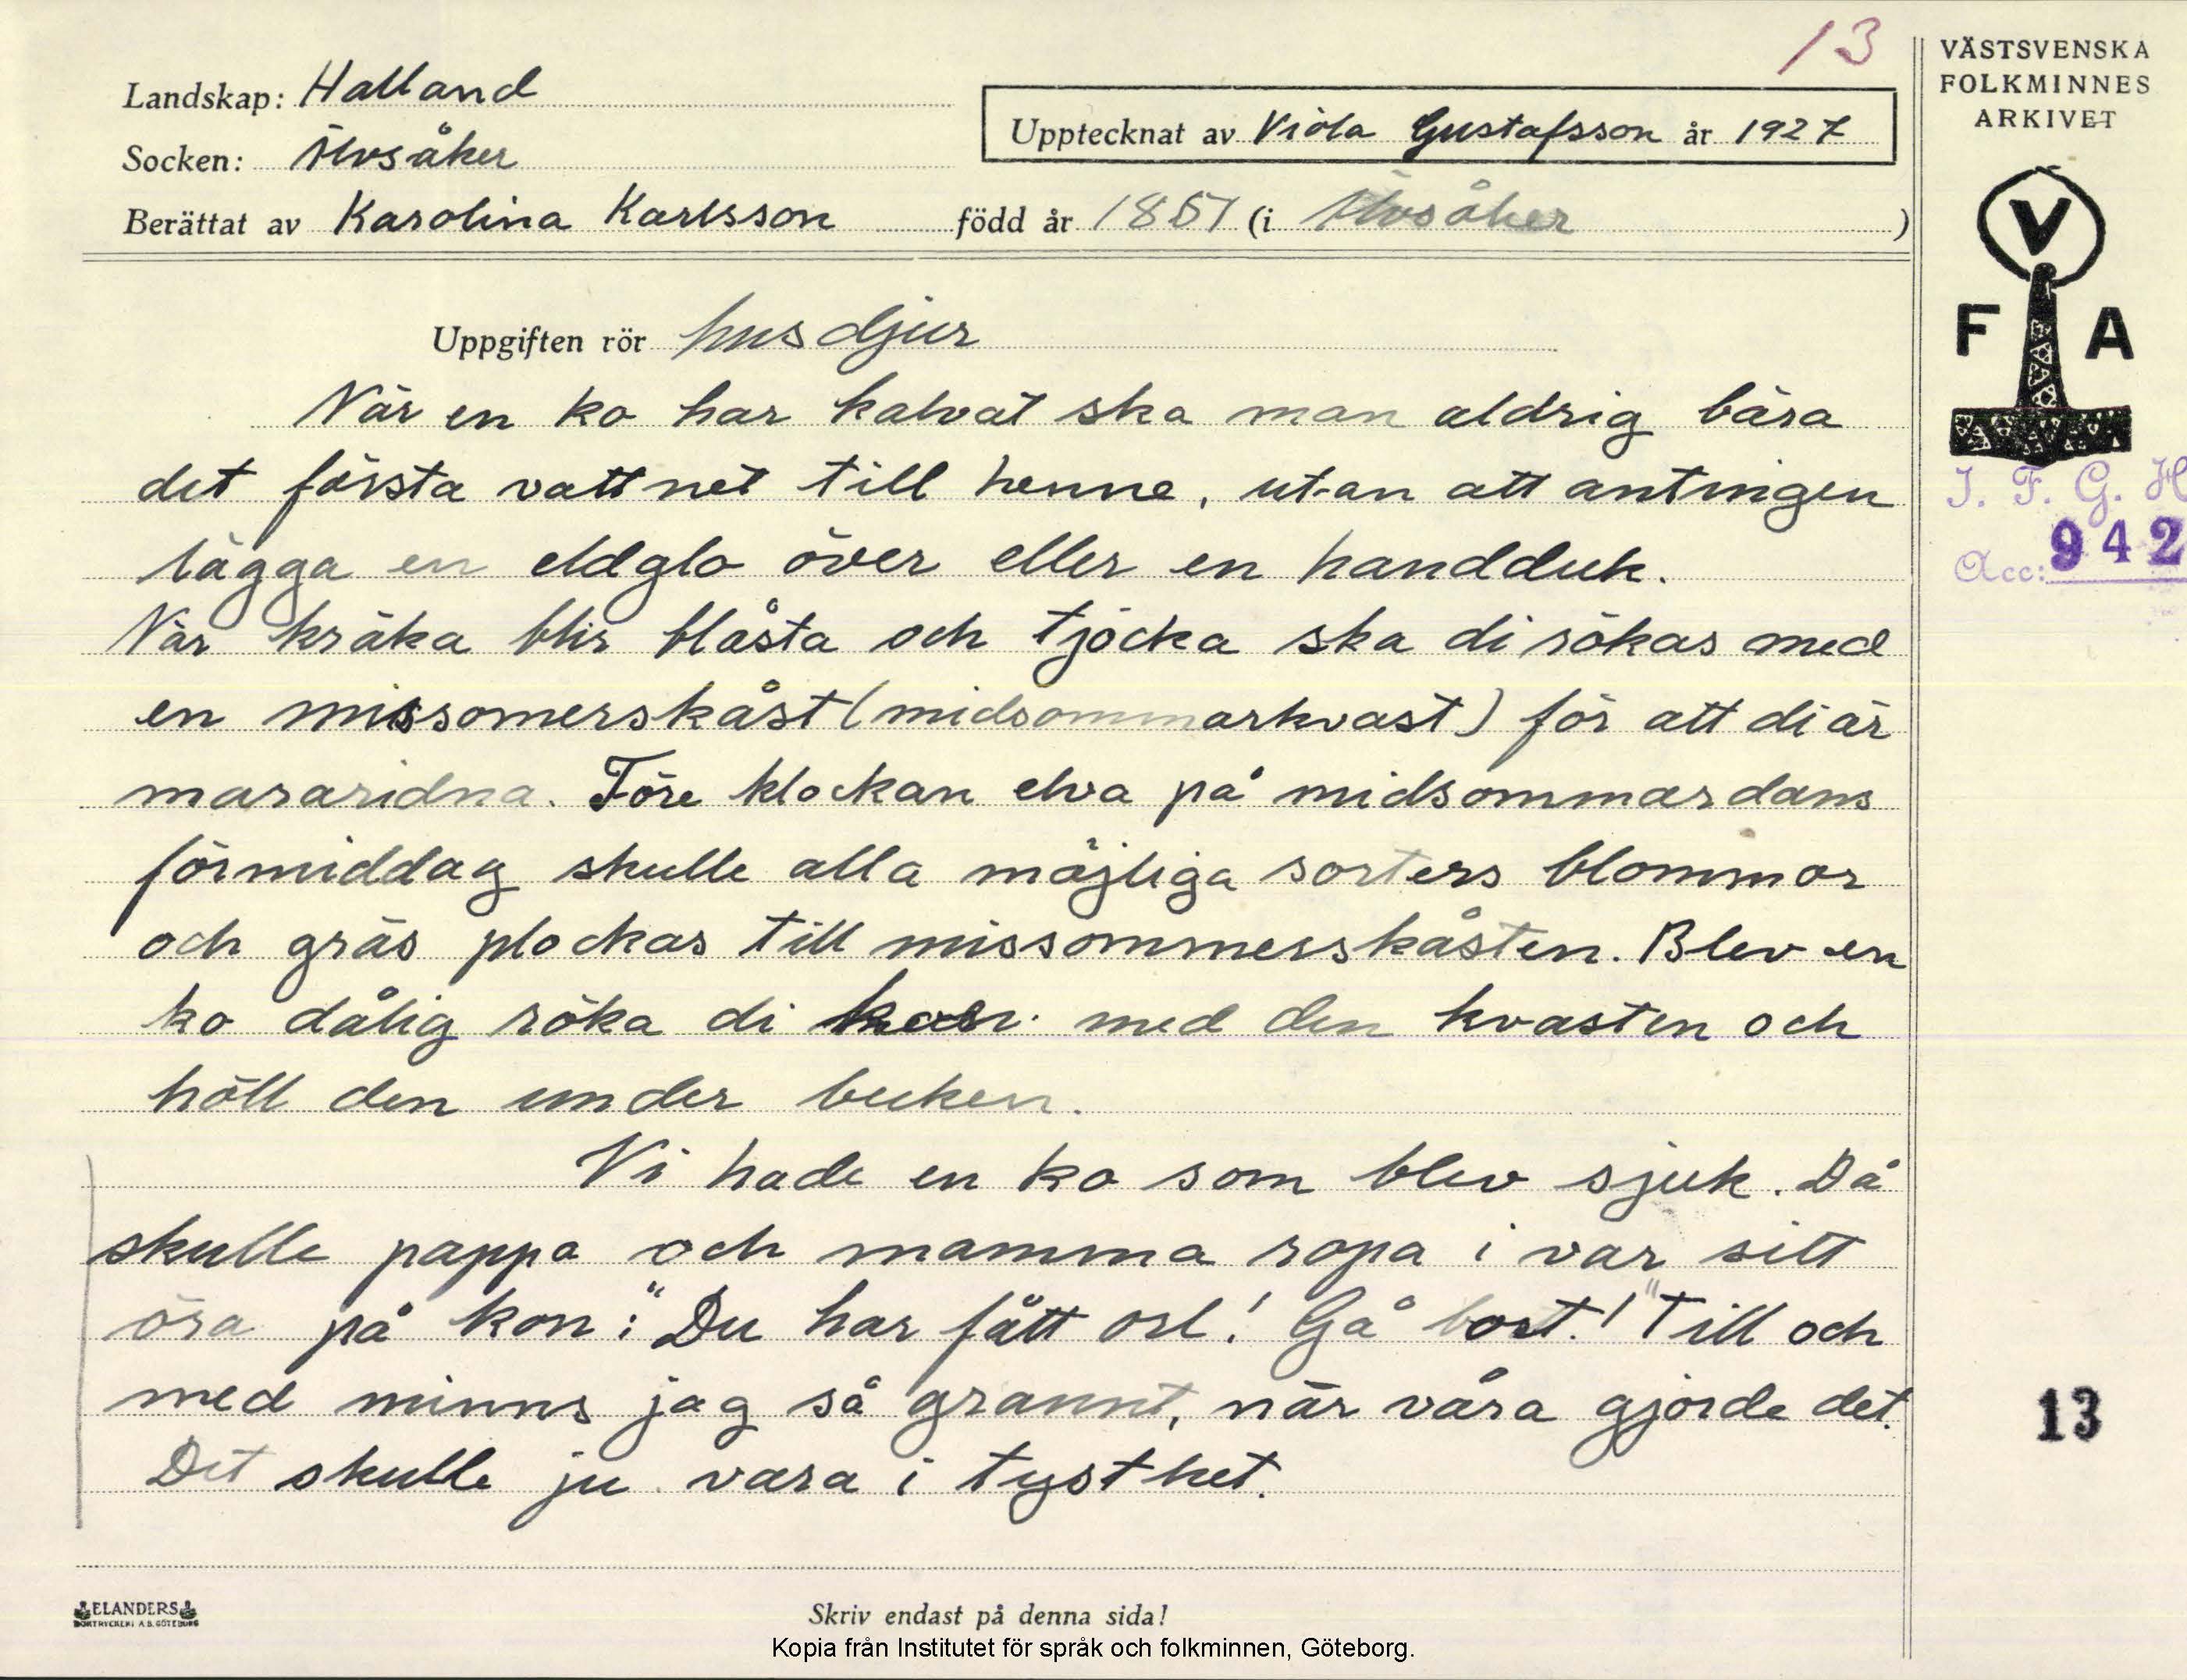 13
Landskap: Halland
Socken: Älvsåker
Berättat av Karolina Karlsson född år 1851 (i Älvsåker)
Upptecknat av Viola Gustafsson år 1927
VÄSTSVENSKA
FOLKMINNES
ARKIVET
V
F A
I. F. G. H
Acc: 942
Uppgiften rör husdjur
När en ko har kalvat ska man aldrig bära
det första vattnet till henne, utan att antingen
lägga en eldglo över eller en handduk.
När kräka blir blåsta och tjocka ska di rökas med
en missomerskåst (midsommarkvast) för att di är
mararidna. Före klockan elva på midsommardans
förmiddag skulle alla möjliga sorters blommor
och gräs plockas till missommerskåsten. Blev en
ko dålig röka di med den kvasten och
höll den under buken.
Vi hade en ko som blev sjuk. Då
skulle pappa och mamma ropa i var sitt
öra på kon: "Du har fått orl! Gå bort!" Till och
med minns jag så grannt, när våra gjorde det.
Det skulle ju vara i tysthet.
13
ELANDERS
BOKTRYCKERI A.B. GÖTEBORG
Skriv endast på denna sida!
Kopia från Institutet för språk och folkminnen, Göteborg.